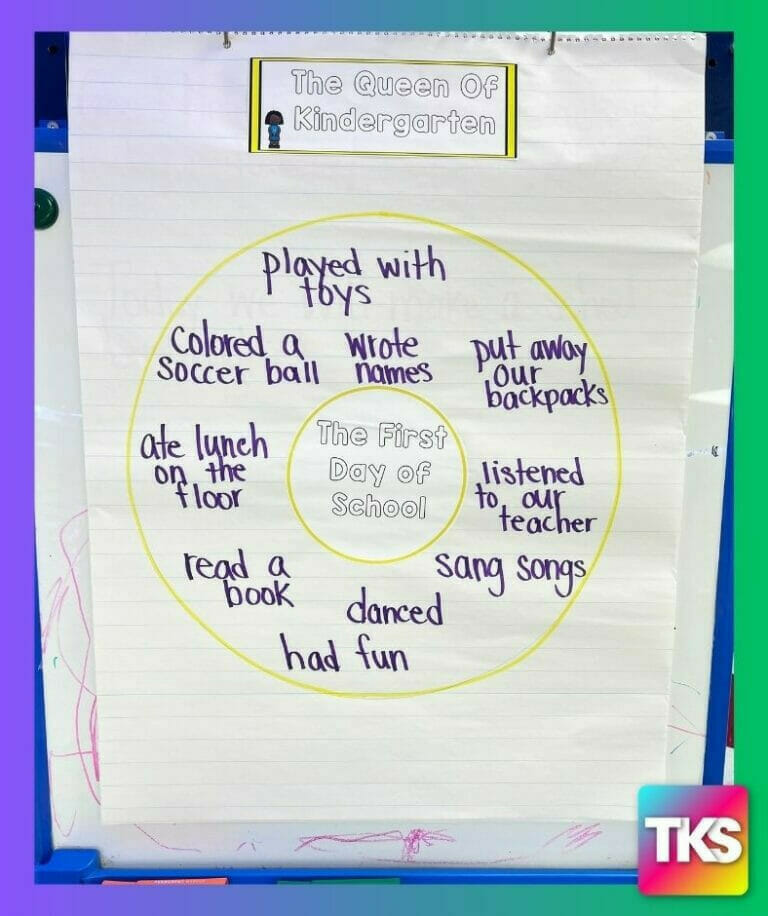 The Queen Of
Kindergarten
played with
toys
colored a
soccer ball
wrote
names
put away
our
backpacks
ate lunch
on the
floor
The First
Day of
School
listened
to our
teacher
read a
book
sang songs
danced
had fun
TKS